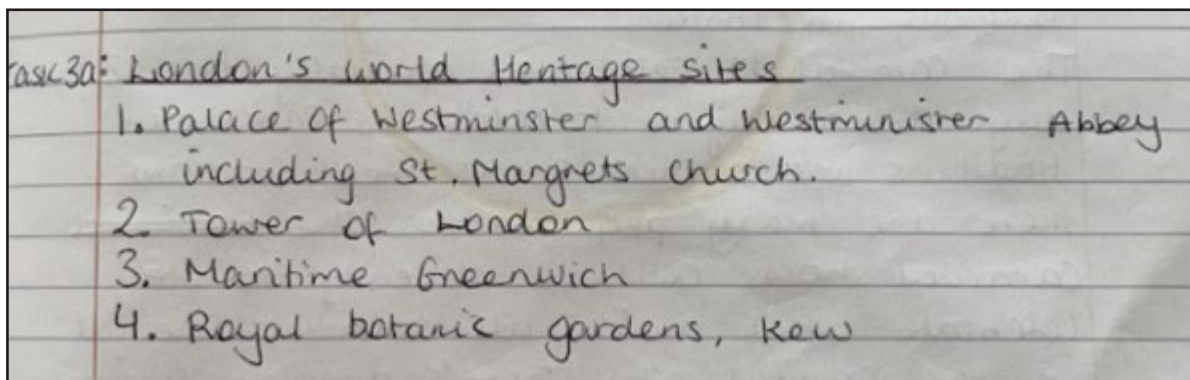 Task 3a: London's World Heritage Sites
1. Palace of Westminster and Westminister Abbey
including St. Margrets Church.
2 Tower of London
3. Maritime Greenwich
4. Royal botanic gardens, Kew